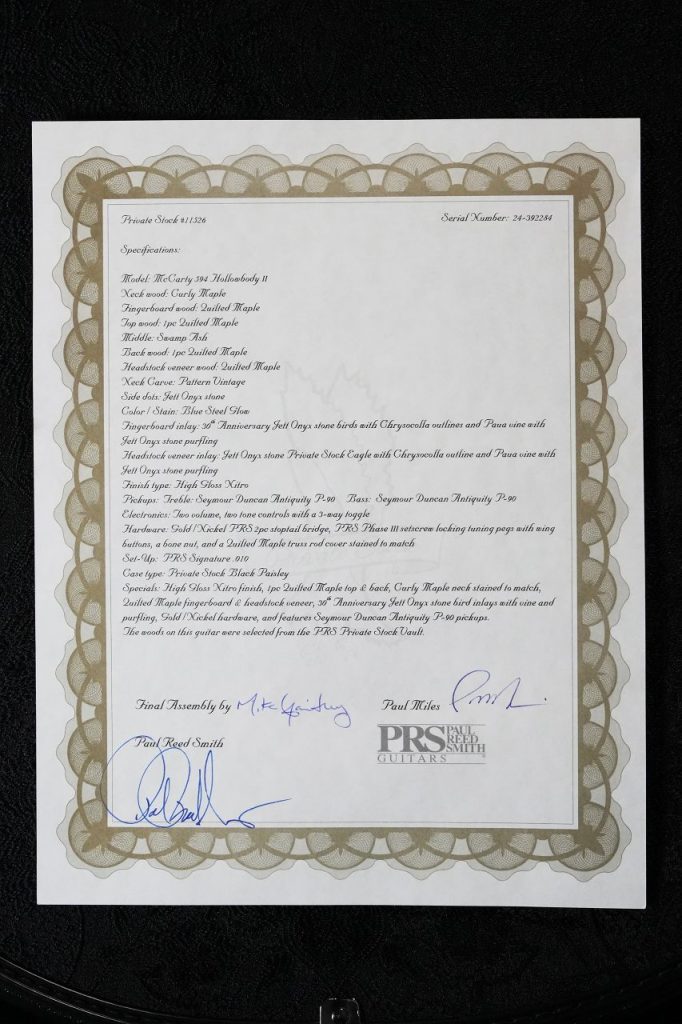 Private Stock #11526
Serial Number: 24-392284
Specifications:
Model: McCarty 594 Hollowbody II
Neck wood: Curly Maple
Fingerboard wood: Quilted Maple
Top wood: 1pc Quilted Maple
Middle: Swamp Ash
Back wood: 1pc Quilted Maple
Headstock veneer wood: Quilted Maple
Neck Carve: Pattern Vintage
Side dots: Jett Onyx stone
Color / Stain: Blue Steel Glow
Fingerboard inlay: 30th Anniversary Jett Onyx stone birds with Chrysocolla outlines and Paua vine with
Jett Onyx stone purfling
Headstock veneer inlay: Jett Onyx stone Private Stock Eagle with Chrysocolla outline and Paua vine with
Jett Onyx stone purfling
Finish type: High Gloss Nitro
Pickups: Treble: Seymour Duncan Antiquity P-90 Bass: Seymour Duncan Antiquity P-90
Electronics: Two volume, two tone controls with a 3-way toggle
Hardware: Gold / Nickel PRS 2pc stoptail bridge, PRS Phase III setscrew locking tuning pegs with wing
buttons, a bone nut, and a Quilted Maple truss rod cover stained to match
Set-Up: PRS Signature .010
Case type: Private Stock Black Paisley
Specials: High Gloss Nitro finish, 1pc Quilted Maple top & back, Curly Maple neck stained to match,
Quilted Maple fingerboard & headstock veneer, 30th Anniversary Jett Onyx stone bird inlays with vine and
purfling, Gold / Nickel hardware, and features Seymour Duncan Antiquity P-90 pickups.
The woods on this guitar were selected from the PRS Private Stock Vault.
Final Assembly by Mike
Paul Miles
Paul Reed Smith
PRS PAUL REED SMITH
GUITARS